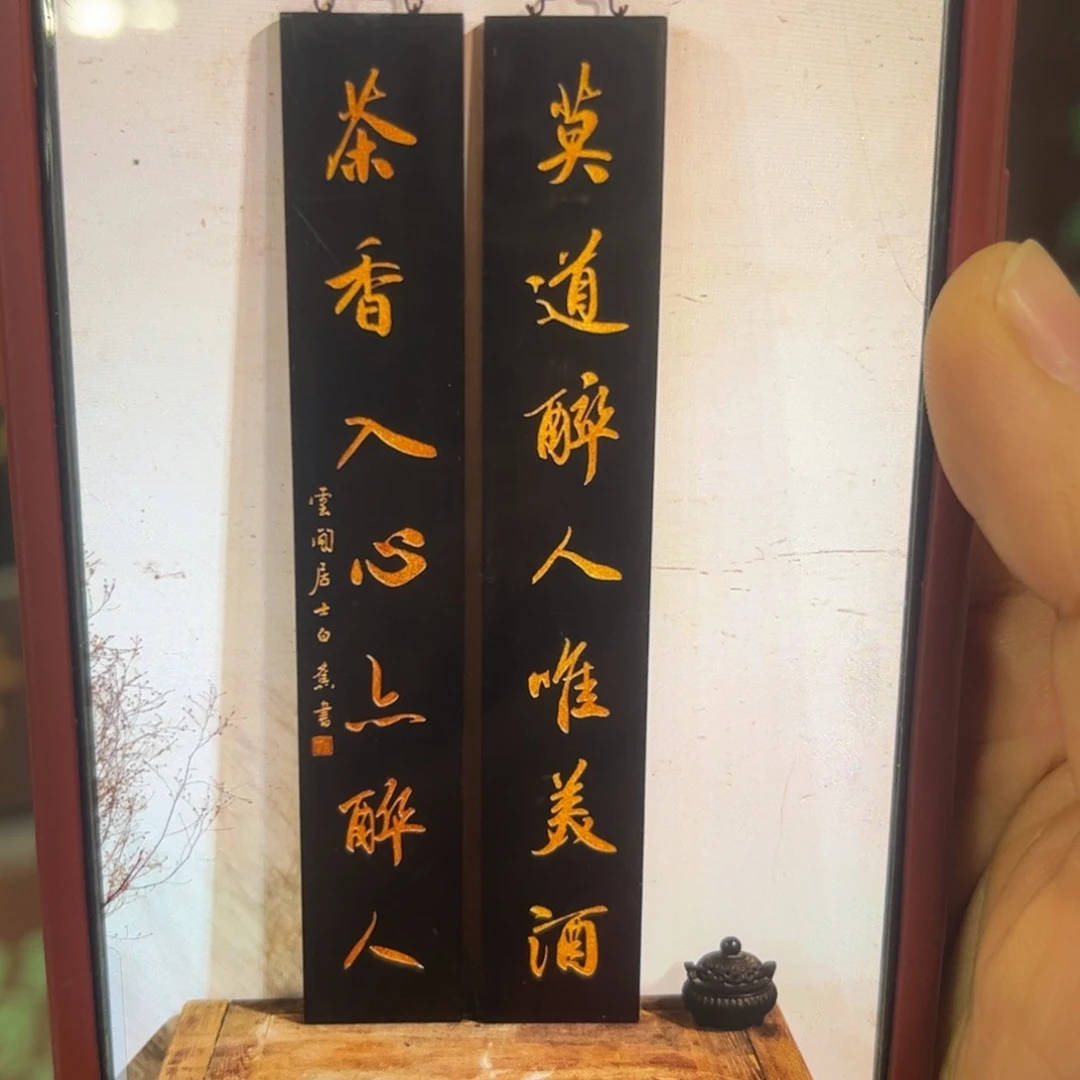 莫道醉人唯美酒
茶香入心亦醉人
雲間居士白蕉書